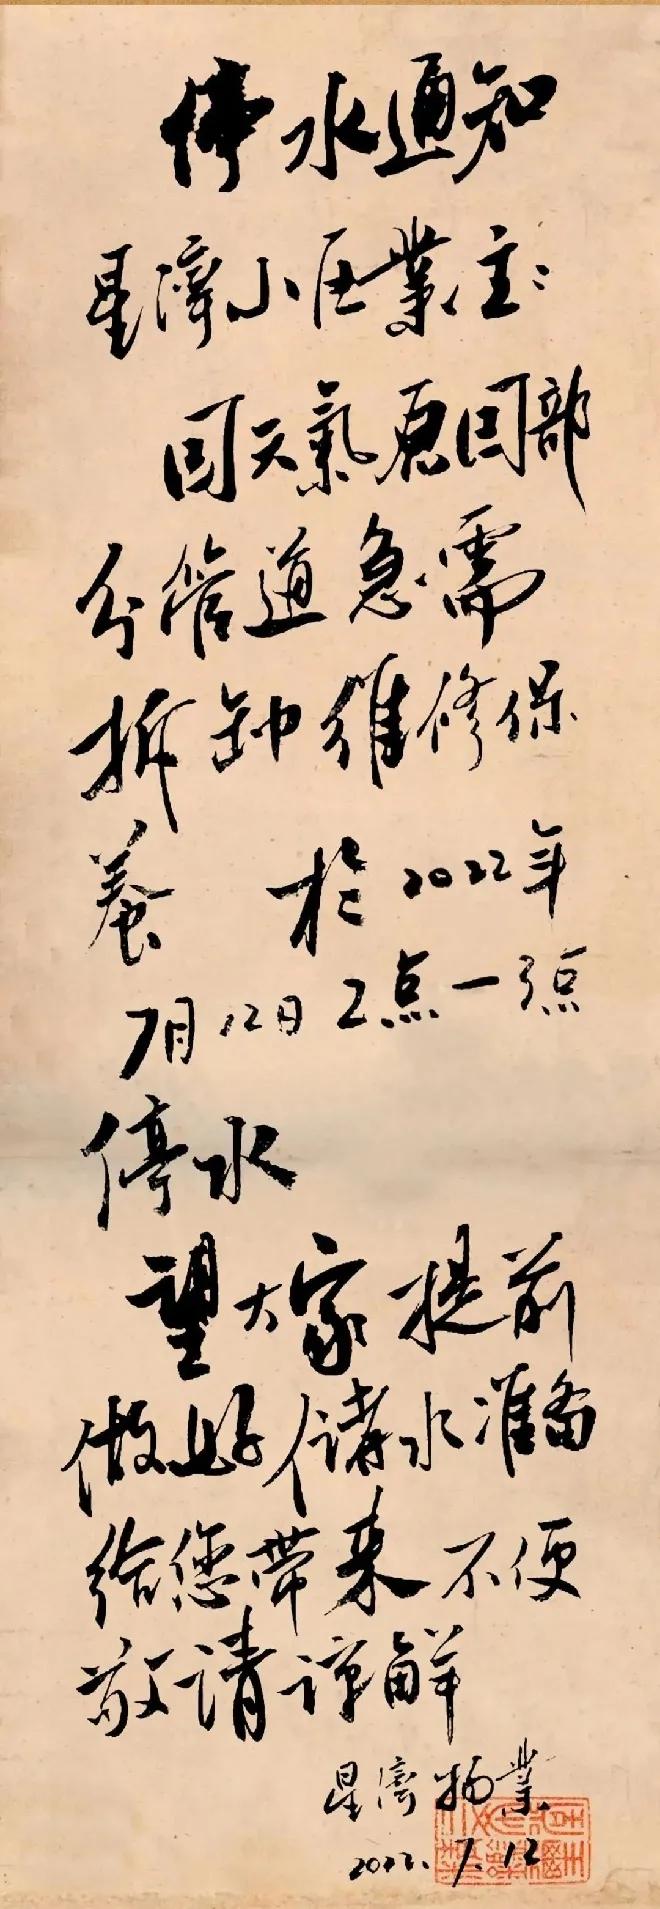 停水通知
星濟小区業主：
因天氣原因部
分管道急需
拆卸维修保
養 於2022年
7月12日2点一3点
停水
望大家提前
做好储水准备
给您带来不便
敬请谅解
星濟物業
2022.7.12